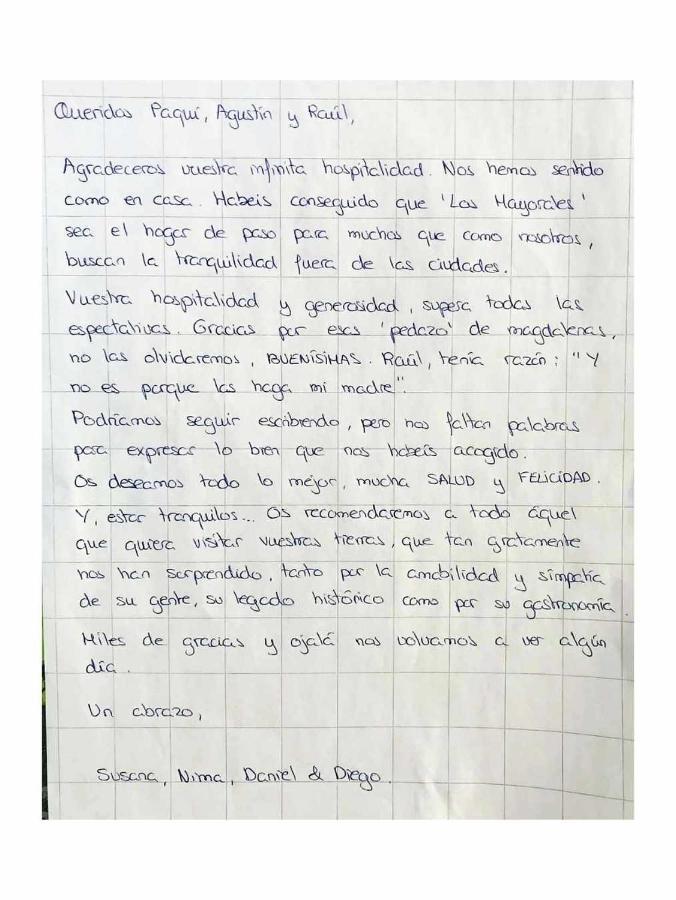 Queridos Paqui, Agustín y Raúl,
Agradeceros vuestra infinita hospitalidad. Nos hemos sentido
como en casa. Habeis conseguido que 'Los Mayorales'
sea el hogar de paso para muchos que como nosotros,
buscan la tranquilidad fuera de las ciudades.
Vuestra hospitalidad y generosidad, supera todas las
espectativas. Gracias por esas 'pedazo' de magdalenas,
no las olvidaremos, BUENÍSIMAS. Raúl, tenía razón: "Y
no es porque las haga mi madre".
Podríamos seguir escribiendo, pero nos faltan palabras
para expresar lo bien que nos habeís acogido.
Os deseamos todo lo mejor, mucha SALUD y FELICIDAD.
Y, estar tranquilos... Os recomendaremos a todo aquel
que quiera visitar vuestras tierras, que tan gratamente
nos han sorprendido, tanto por la amabilidad y simpatía
de su gente, su legado histórico como por su gastronomía.
Miles de gracias y ojalá nos volvamos a ver algún
día.
Un abrazo,
Susana, Nima, Daniel & Diego.